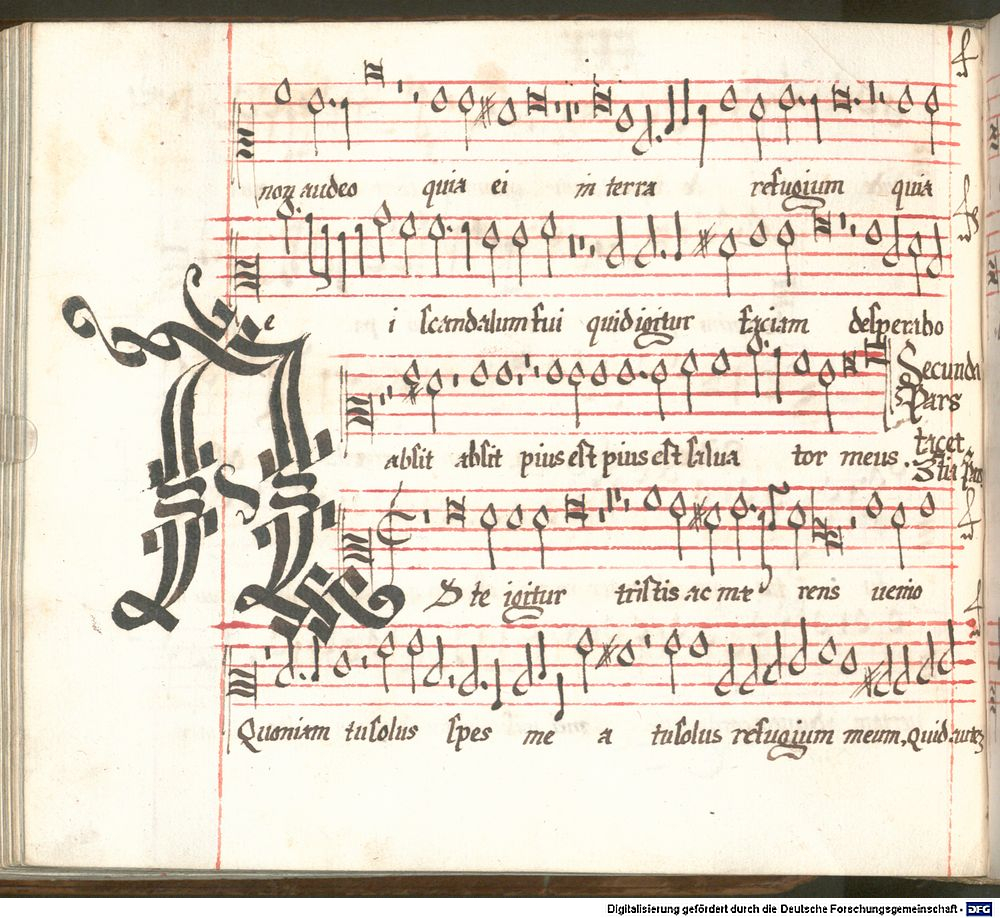 non audeo quia ei in terra refugium quia
e i scandalum fui quid igitur faciam desperabo
absit absit pius est pius est salua tor meus.
Secunda
Pars
tacet
3tia pars
D te igitur tristis ac mæ rens uenio
Quoniam tu solus spes me a tu solus refugium meum, Quid autem
Digitalisierung gefördert durch die Deutsche Forschungsgemeinschaft - DFG